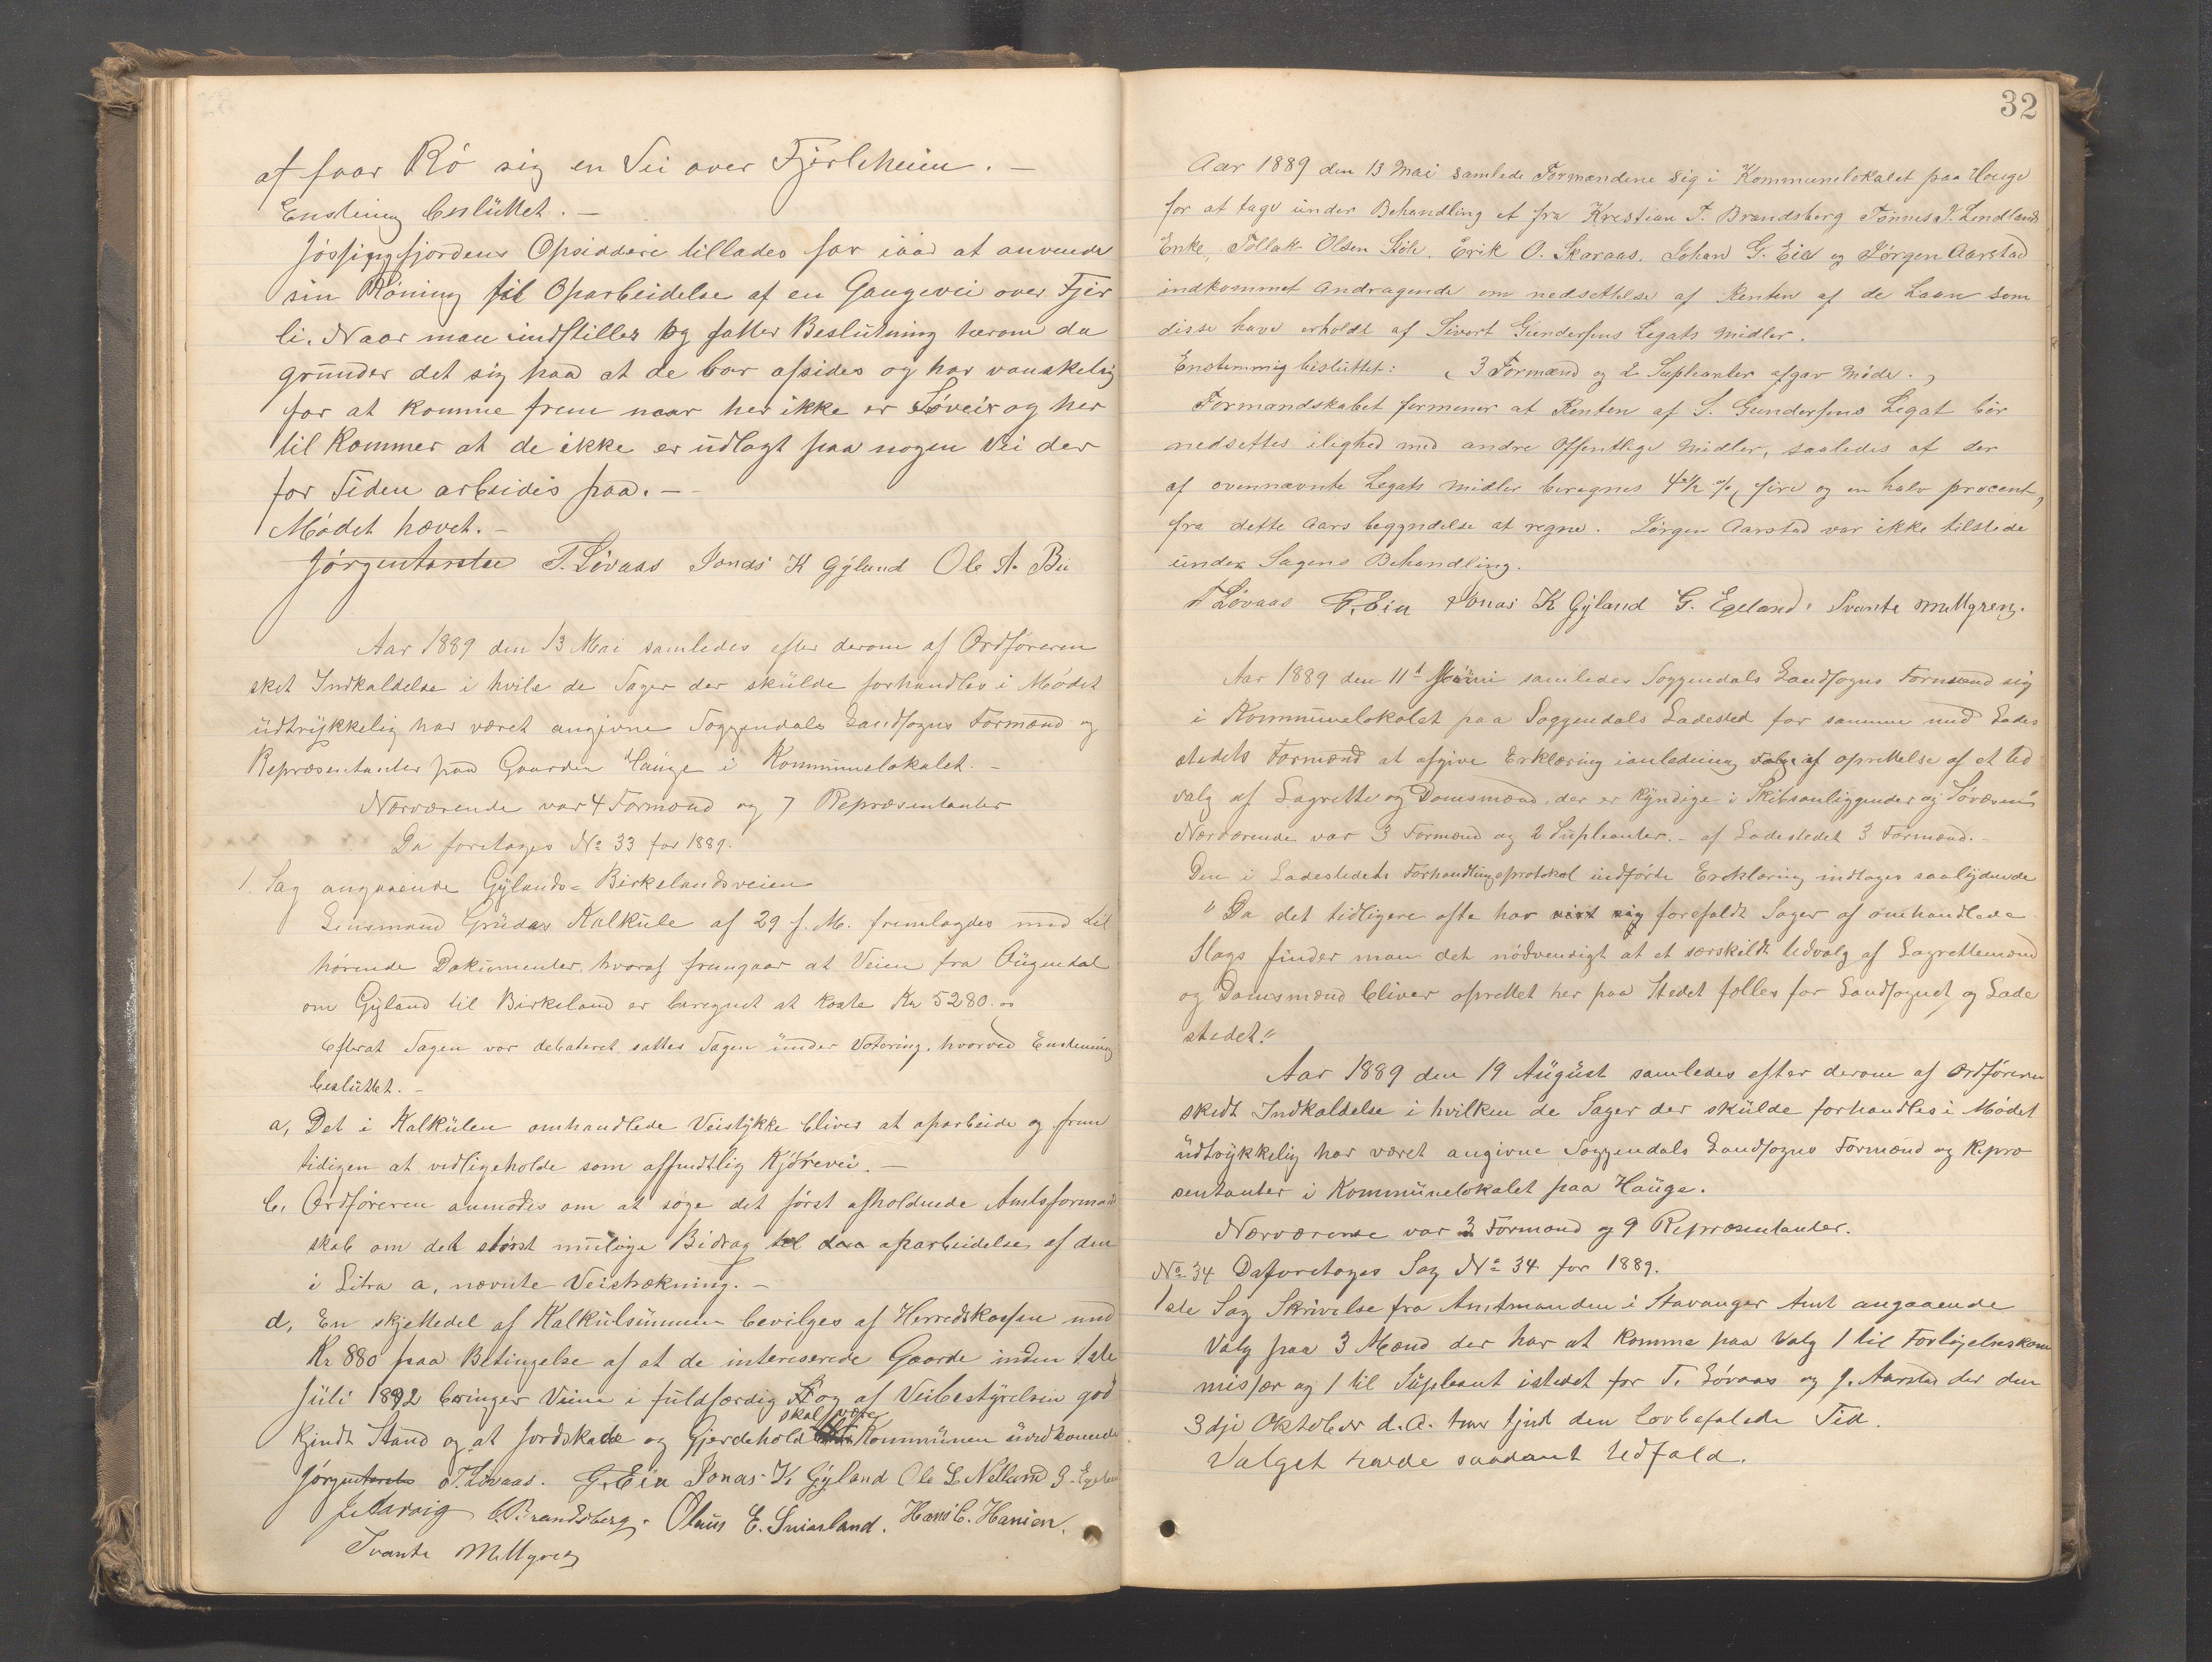 at faar Rø sig en Vei over Fjerleheien. –
Enstemig beslüttet. –
Jøssingfjordens Opsiddere tillades for iaad at anvende
sin Røning til Oparbeidelse af en Gangevei over Fjer
li. Naar man indstiller og fatter Beslütning herom da
grunder det sig paa at de bor afsides og har vanskelig
for at komme frem naar her ikke er Søveir og her
til kommer at de ikke er üdlagt paa nogen Vei der
for Tiden arbeides paa. –
Mødet hævet. –
Jørgen Aarstad T. Løvaas Jonas K Gÿland Ole A. Bü
Aar 1889 den 13 Mai samledes efter derom af Ordføreren
sket Indkaldelse i hvilke de Sager der skülde forhandles i Mødet
üdtrÿkkelig har været angivne Soggendals Landsogns Formænd og
Repræsentanter paa Gaarden Haüge i Kommünelokalet. –
Nærværende var 4 Formænd og 7 Repræsentanter
Da foretages No 33 for 1889.
1. Sag angaaende Gÿlands-Birkelandsveien
Lensmand Grüdes Kalküle af 29 f. M. fremlagdes med til
hørende Dokümenter, hvoraf fremgaar at Veien fra Öÿgendal
om Gÿland til Birkeland er beregnet at koste Kr 5280.00
Efterat Sagen var debateret, sattes Sagen ünder Votering, hvorved Enstemig
beslüttet. –
a, Det i Kalkülen omhandlede Veistÿkke blives at oparbeide og frem
tidigen at vedligeholde som offendtlig Kjørevei. –
b, Ordføreren anmodes om at søge det først afholdnede Amtsformand
skab om det størst mülige Bidrag til oparbeidelse af den
i Litra a, nævnte Veistrækning. –
d, En skjettedel af Kalkülsümmen bevilges af Herredskassen med
Kr 880 paa Betingelse af at de intereserede Gaarde inden 1ste
Jüli 1892 bringer Veien i füldfærdig St og af Veibestÿrelsen god
skal være
kjendt Stand og at Jordskade og Gjerdehold Kommünen üvedkomende
Jørgen Aarstad T. Løvaas. G. Eia Jonas K. Gÿland Ole L Netland G. Egeland
C. Brandsberg. Olaus E. Svinland. Hans C. Hansen.
Svante Mellgren
32
Aar 1889 den 13 Mai samlede Formændene sig i Kommunelokalet paa Houge
for at tage ünder Behandling et fra Krestian T. Brandsberg Tønnes J. Lindlands
Enke, Tollak Olsen Støle. Erik O. Skaraas. Johan G. Eia og Jørgen Aarstad
indkommet Andragende om nedsettelse af Renten af de Laan som
disse have erholdt af Sivert Gundersens Legats midler.
Enstemmig besluttet: ( 3 Formænd og 2 Supleanter afgav Møde. )
Formandskabet formener at Renten af S. Gundersens Legat bør
nedsettes ilighed med andre Offentlige Midler, saaledes at der
af ovennævnte Legats midler beregnes 4 1/2 % ( fire og en halv procent )
fra dette Aars begyndelse at regne. Jørgen Aarstad var ikke tilstede
ünder Sagens Behandling.
T Løvaas G. Eia Jonas K Gÿland G. Egeland. Svante Mellgren.
Aar 1889 den 11te Jüni samledes Soggendals Landsogns Formænd sig
i Kommünelokalet paa Soggendals Ladested for samme med Lades
stedets Formænd at afgive Erklæring ianledning af oprettelse af et üd
valg af Lagrette og Domsmænd, der er kÿndige i Skibsanliggender og Søvæsen
Nærværende var 3 Formænd og 2 Süpleanter. – af Ladestedet 3 Formænd. –
Den i Ladestedets Forhandlingsprotokol indførte Ercklæring indtages saalÿdende
"Da det tidligere ofte har forefaldt Sager af omhandlede
Slags finder man det nødvendigt at et særskildt Udvalg af Lagrettemænd
og Domsmænd bliver oprettet her paa Stedet fælles for Landsognet og Lade
stedet."
Aar 1889 den 19 Aügüst samledes efter derom af Ordføreren
skedt Indkaldelse i hvilken de Sager der skülde forhandles i Mødet
üdtrÿkkelig har været angivne Soggendals Landsogns Formænd og Repræ
sentanter i Kommünelokalet paa Haüge.
Nærværende var 3 Formænd og 9 Repræsentanter.
No 34 Da foretages Sag No 34 for 1889.
1ste Sag Skrivelse fra Amtmanden i Stavanger Amt angaaende
Valg paa 3 Mænd der har at komme paa Valg 1 til Forligelseskom
missær og 1 til Süpleant istedet for T. Løvaas og J. Aarstad der den
3dje Oktober d. A. har tjent den lovbefalede Tid.
Valget havde saadant Udfald.